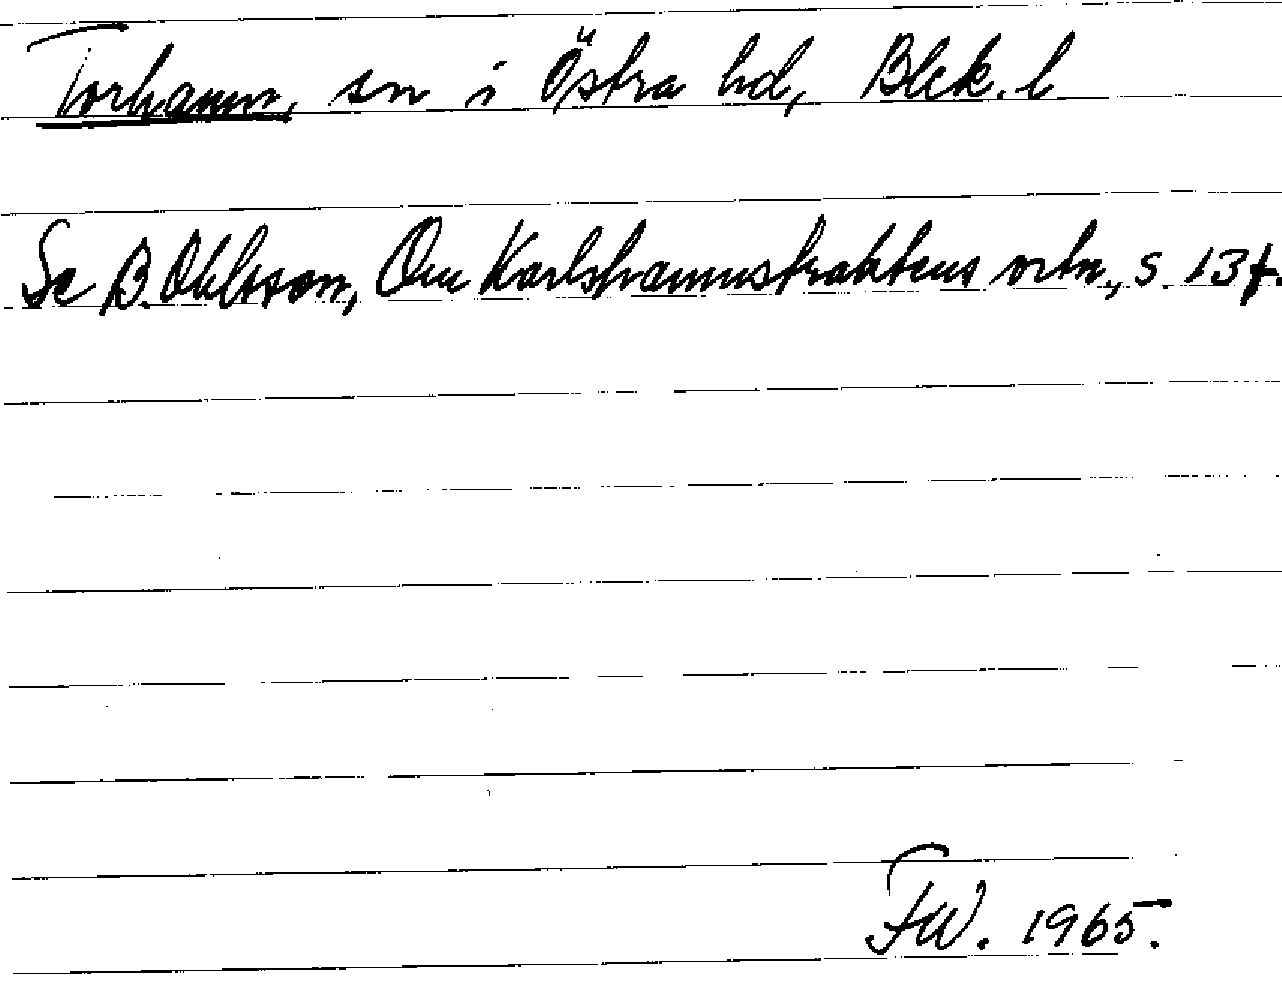 Torhamn, sn i Östra hd, Blek. l
Se B. Ohlsson, Om Karlshamnstraktens ortn., s. 13 f.
FW. 1965.